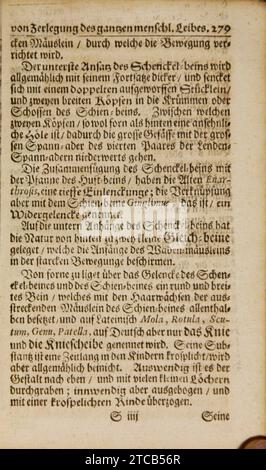 von Zerlegung des gantzen menschl. Leibes. 279
cken Mäuslein / durch welche die Bewegung ver-
richtet wird.
Der unterste Ansatz des Schenckel-beins wird
allgemählich mit seinem Fortsatze dicker / und sencket
sich mit einem doppelten aufgeworffen Stücklein /
und zweyen breiten Köpfen in die Krümmen oder
Schossen des Schien-beins. Zwischen welchen
zweyen Köpfen / so wol forn als hinten eine ansehnli-
che Höle ist / dadurch die grosse Gefässe mit der gros-
sen Spann-ader des vierten Paares der Lenden-
Spann-adern niederwerts gehen.
Die Zusammenfügung des Schenckel-beins mit
der Pfanne des Huft-beins / haben die Alten Enar-
throsis, eine tieffe Einlenckung; die Verknüpfung
aber mit dem Schien-beine Ginglimus, das ist / ein
Widergelencke genennet.
Auf die untern Anhänge des Schenckel-beins hat
die Natur von hinten zu zwey kleine Gleich-beine
geleget / welche die Anfänge des Wadenmäusleins
in der starcken Bewegunge beschirmen.
Von forne zu liget über das Gelencke des Schen-
ckel-beines und des Schien-beines ein rund und brei-
tes Bein / welches mit den Haarwachsen der aus-
streckenden Mäuslein des Schien-beines allenthal-
ben besetzet, und auf Lateinisch Mola, Rotula, Scu-
tum, Genu, Patella, auf Deutsch aber nur das Knie
und die Kniescheibe genennet wird. Seine Sub-
stantz ist eine Zeitlang in den Kindern krosplicht / wird
aber allgemählich beinicht. Auswendig ist es der
Gestalt nach eben / und mit vielen kleinen Löchern
durchgraben; innwendig aber ausgebogen / und
mit einer krospelichten Rinde überzogen.
S iiij Seine
alamy
Image ID: 2TCB56R
www.alamy.com